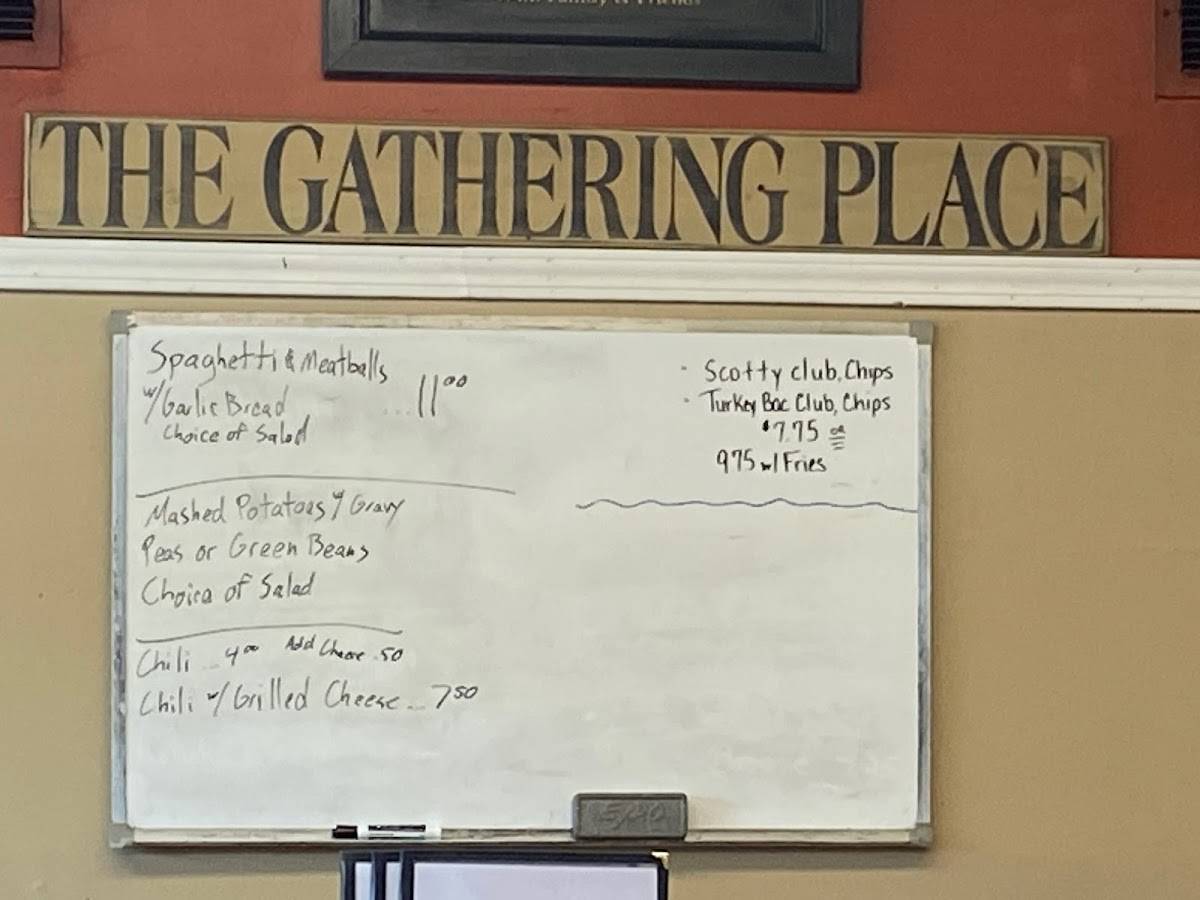 Family & Friends
THE GATHERING PLACE
Spaghetti & Meatballs
w/Garlic Bread ...11⁰⁰
Choice of Salad
Mashed Potatoes w/ Gravy
Peas or Green Beans
Choice of Salad
Chili ... 4⁰⁰ Add Cheese .50
Chili w/ Grilled Cheese ... 7⁵⁰
· Scotty club, Chips
· Turkey Bac Club, Chips
$7.75 or
975 w/ Fries